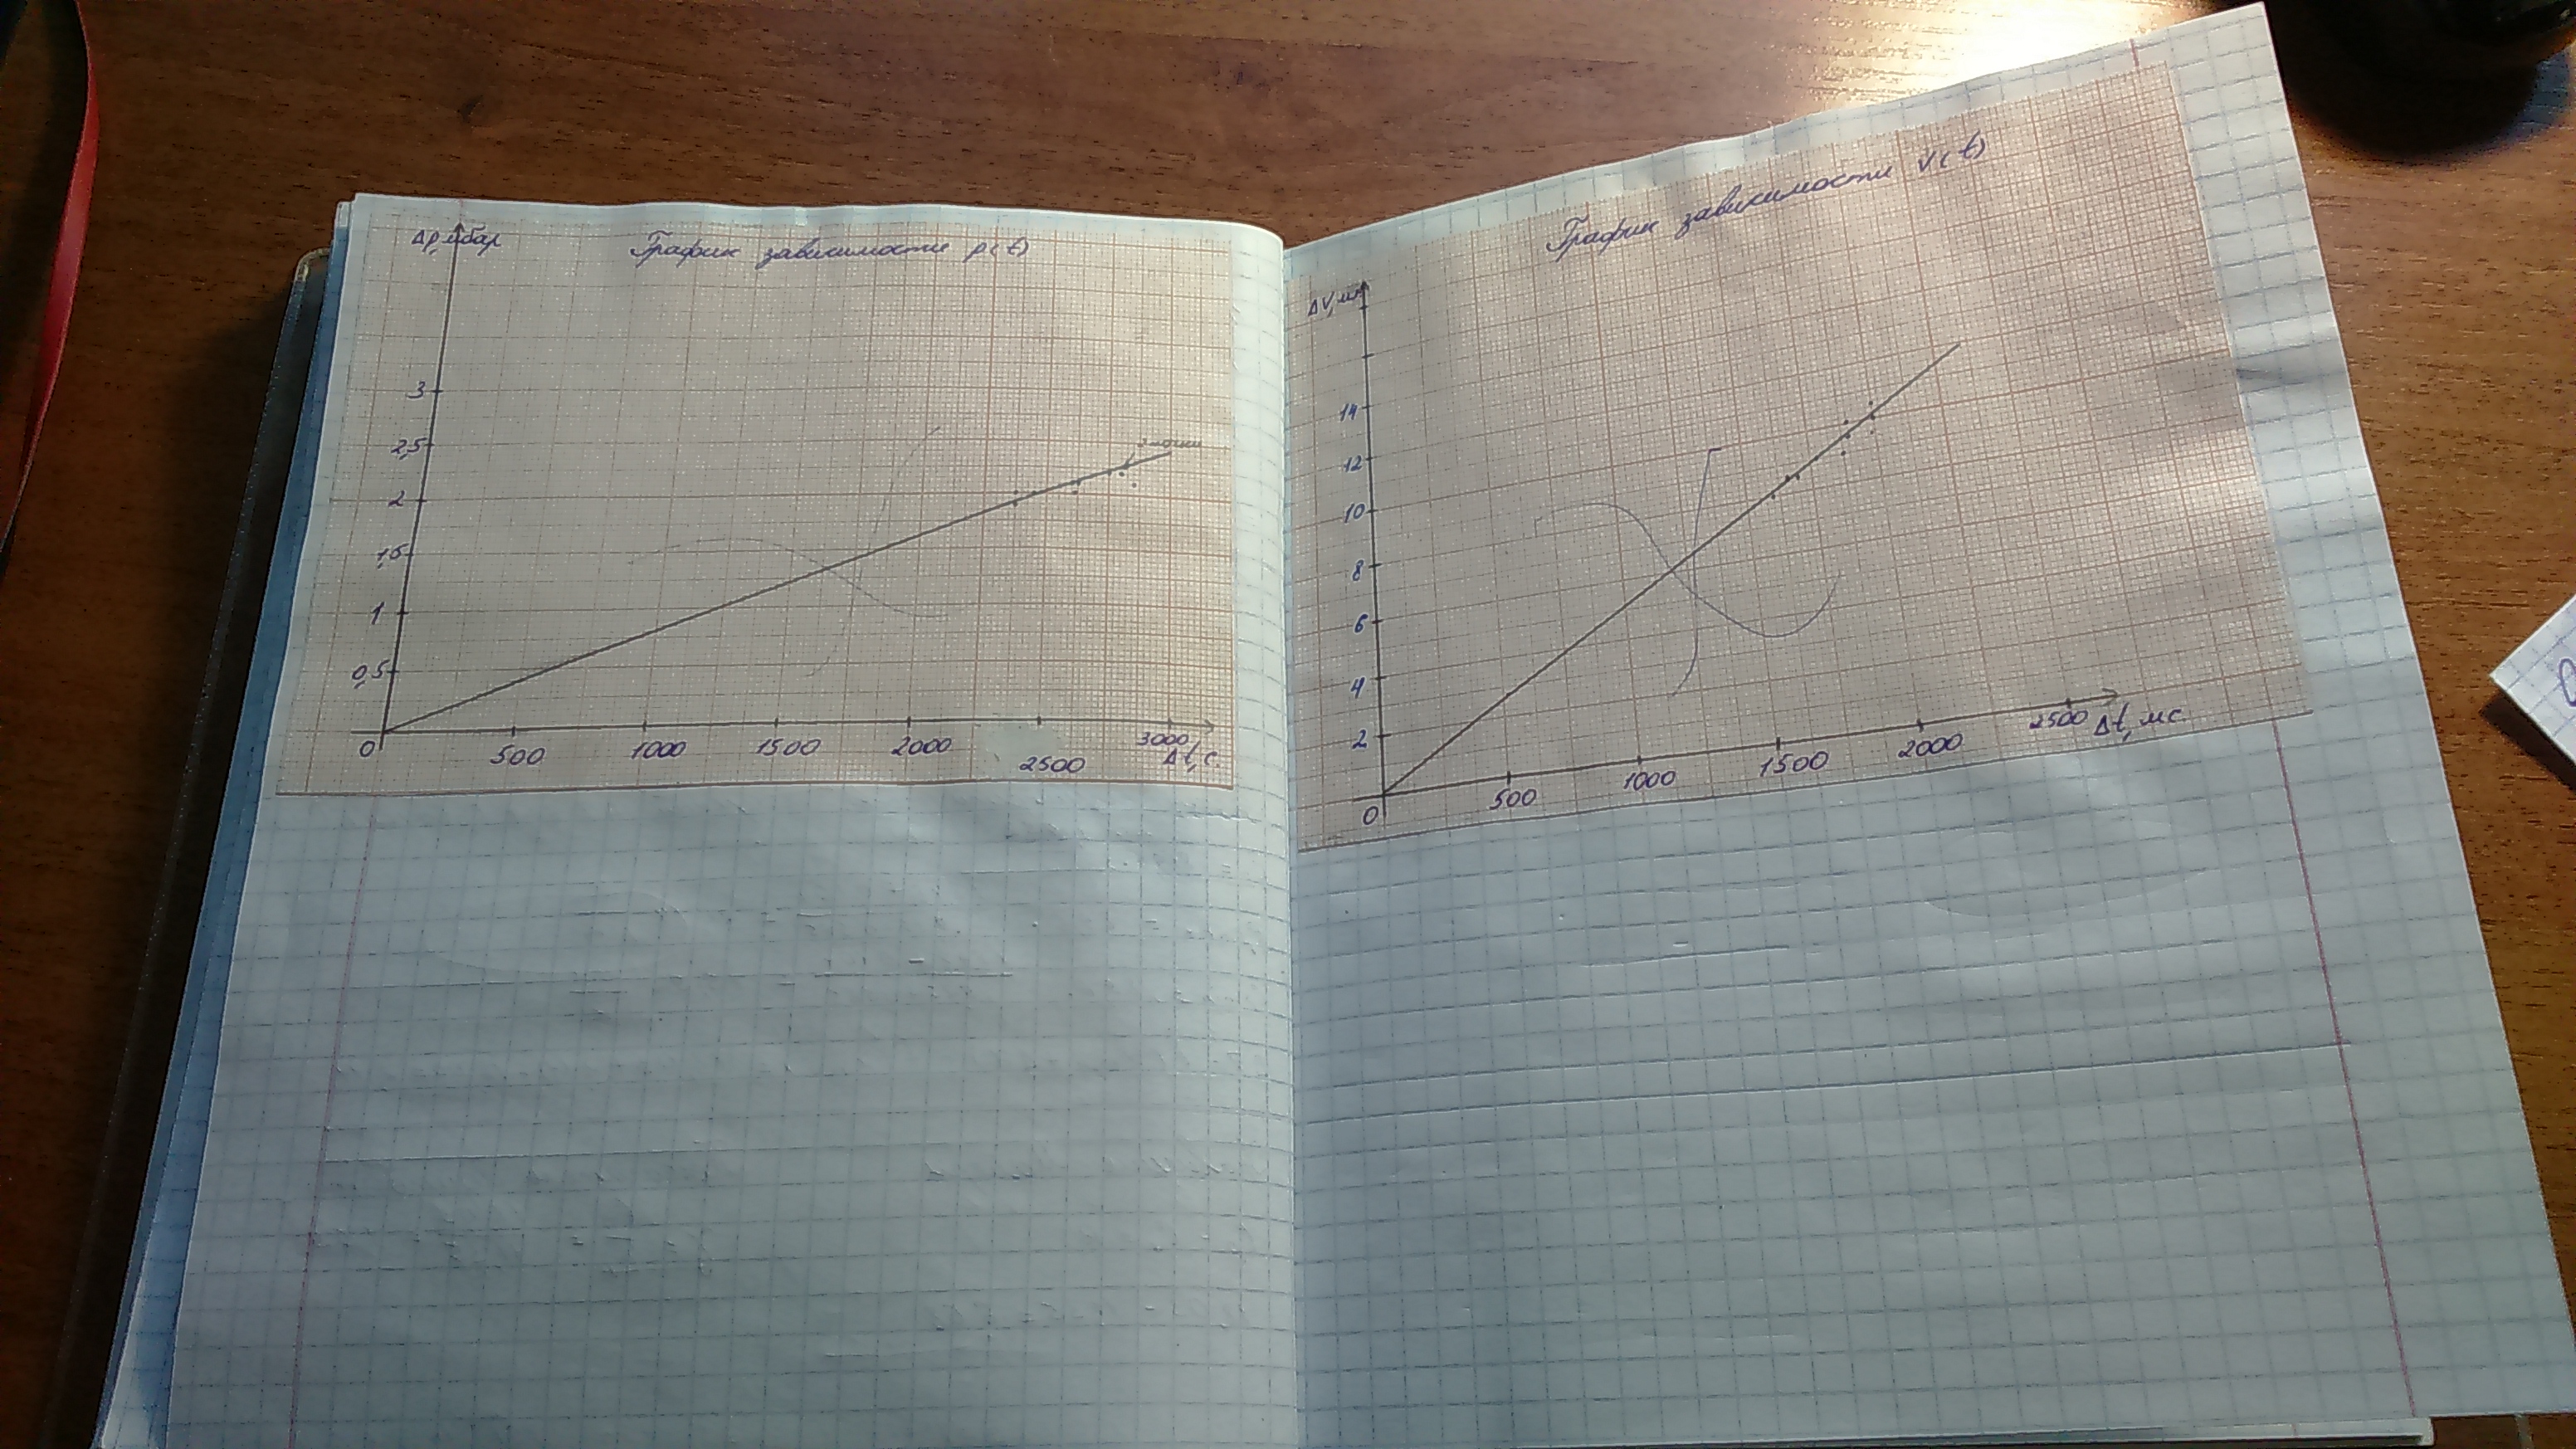 Δp, мбар
График зависимости p(t)
3
2,5
2 точки
2
1,5
1
0,5
0
500
1000
1500
2000
2500
3000
Δt, с.
График зависимости V(t)
ΔV, мл
14
12
10
8
6
4
2
0
500
1000
1500
2000
2500
Δt, мс.